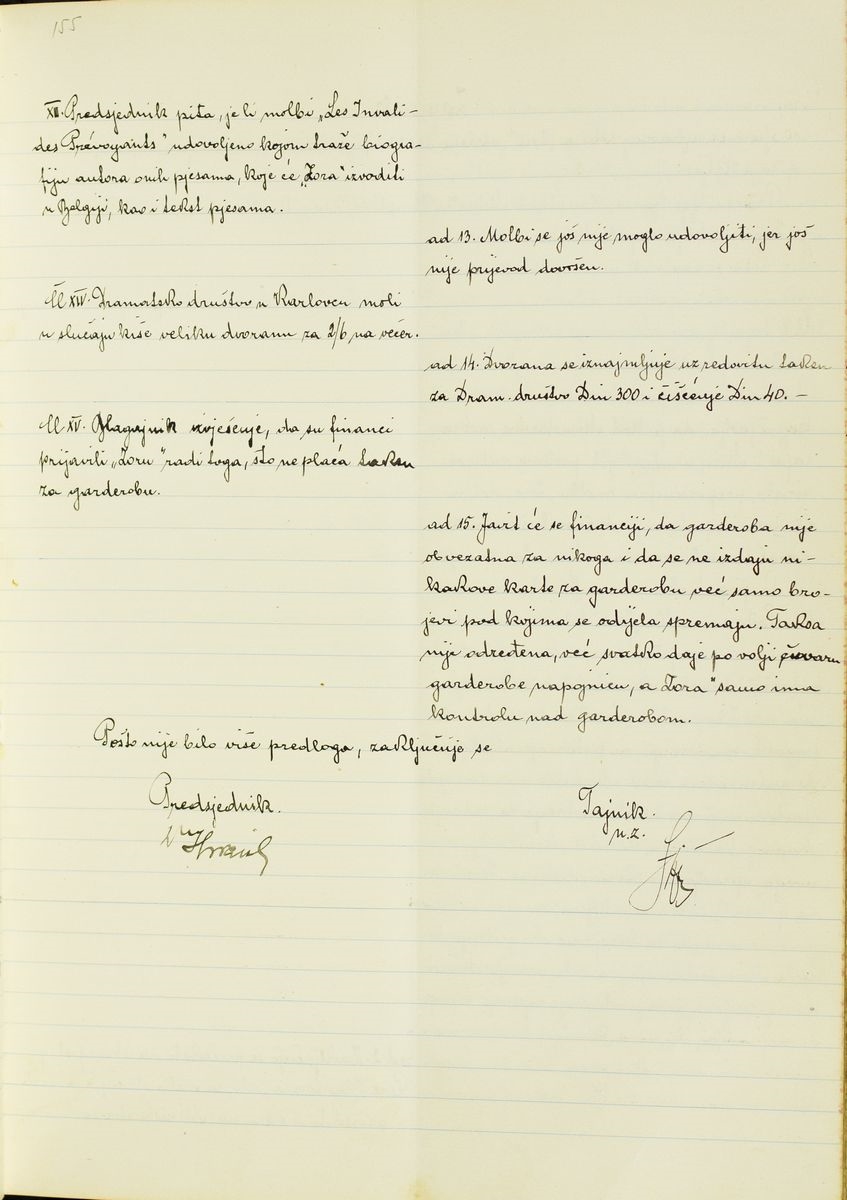 155
XIII. Predsjednik pita, je li molbi „Les Invali-
des Prévoyants" udovoljeno kojom traže biogra-
fiju autora onih pjesama, koje će „Zora" izvoditi
u Belgiji, kao i tekst pjesama.
ad 13. Molbi se još nije moglo udovoljiti, jer još
nije prijevod dovršen.
Ad XIV. Dramatsko društvo u Karlovcu moli
u slučaju kiše veliku dvoranu za 2/6 na večer.
ad 14. Dvorana se iznajmljuje uz redovitu taksu
za Dram. društvo Din 300 i čišćenje Din 40. —
Ad XV. Blagajnik izvješćuje, da su financi
prijavili „Zoru" radi toga, što ne plaća taksu
za garderobu.
ad 15. Javit će se financiji, da garderoba nije
obvezatna za nikoga i da se ne izdaju ni-
kakove karte za garderobu već samo bro-
jevi pod kojima se odijela spremaju. Taksa
nije određena, već svatko daje po volji čuvaru
garderobe napojnicu, a Zora" samo ima
kontrolu nad garderobom.
Pošto nije bilo više predloga, zaključuje se
Predsjednik.
Tajnik.
n.z.